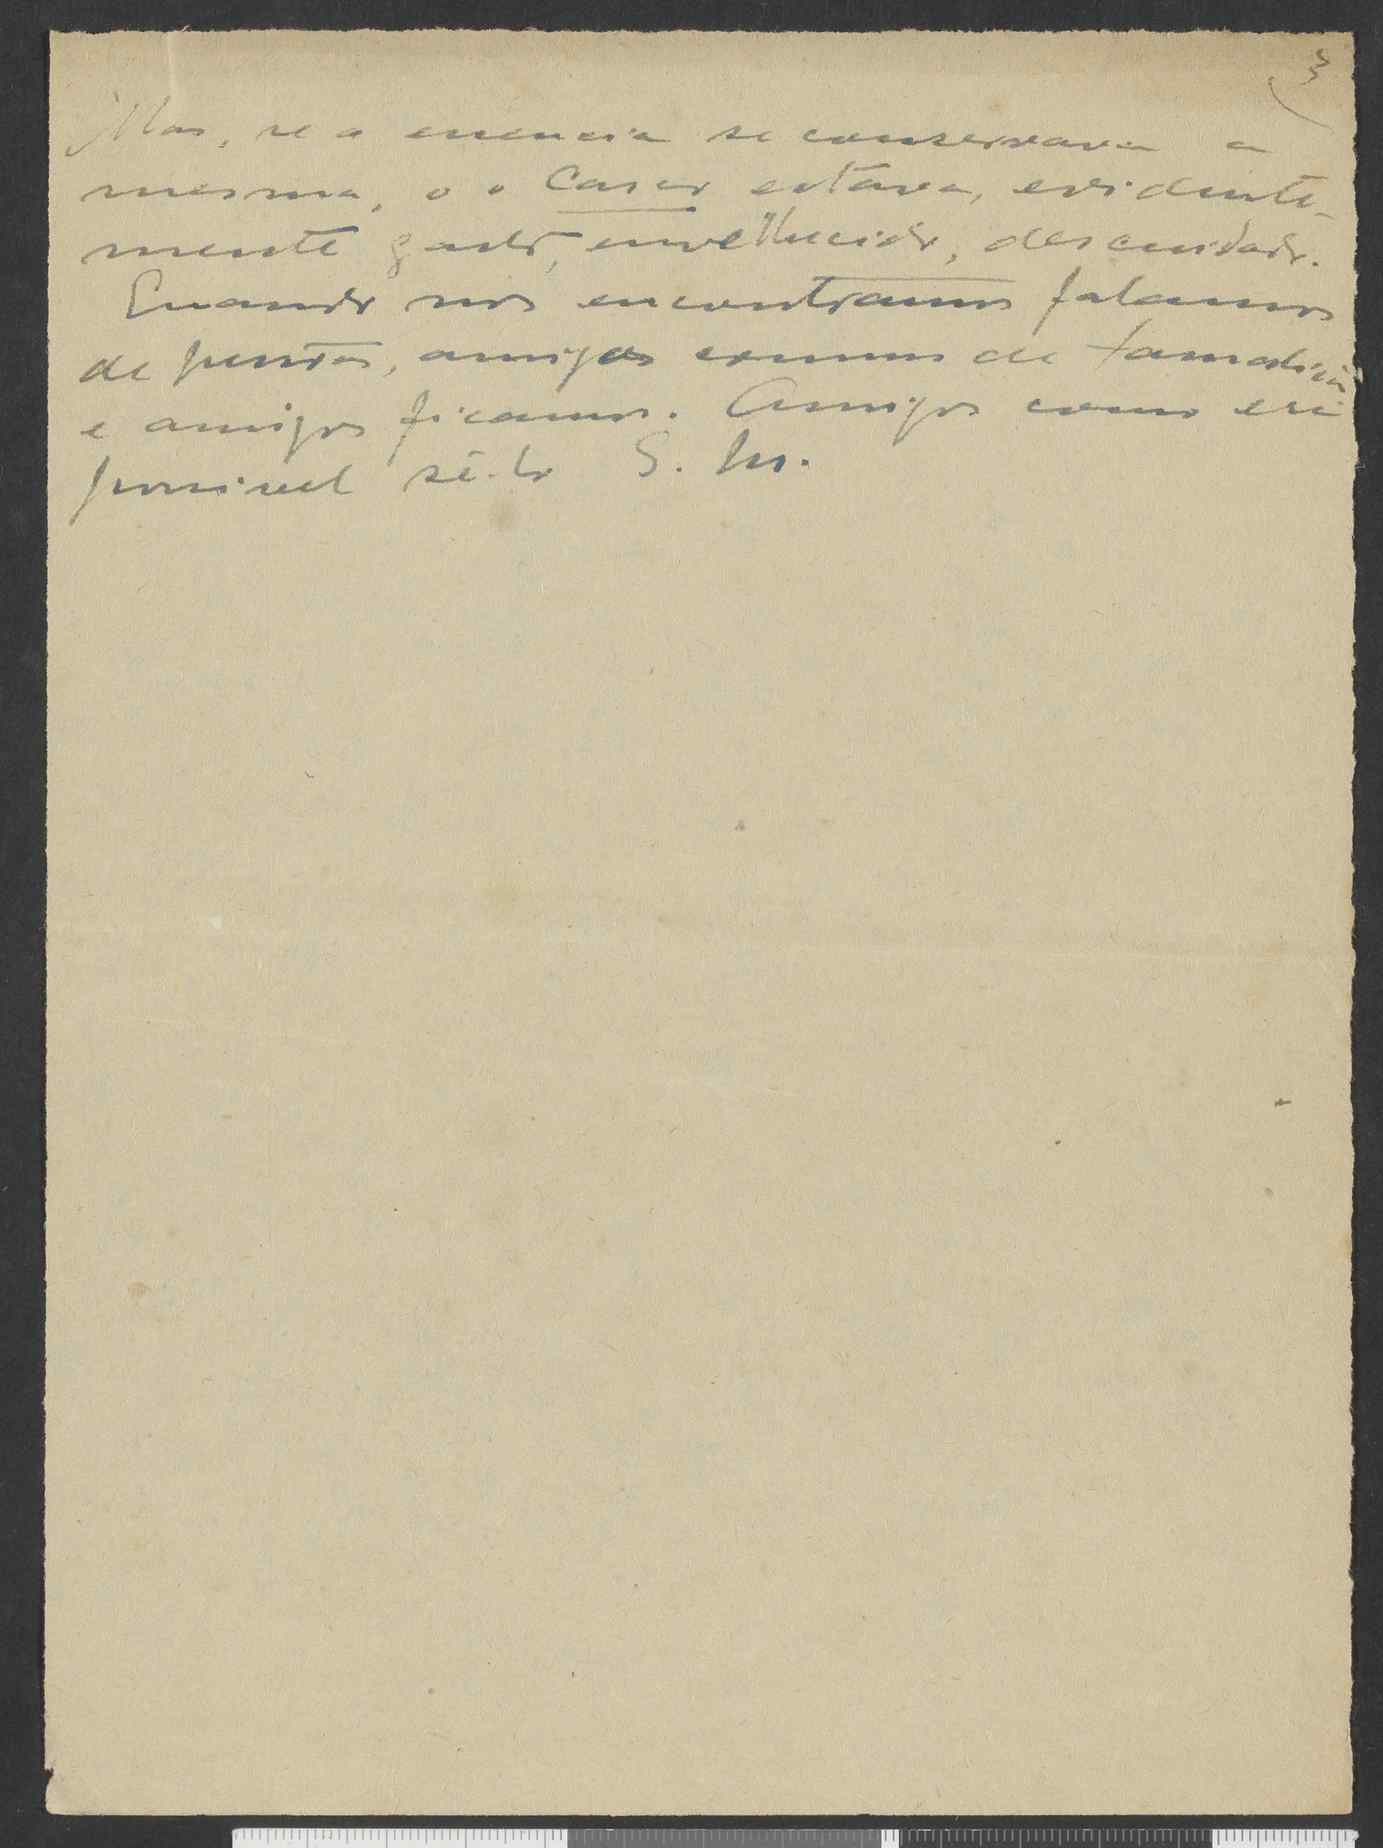 3
Mas, se a essencia se conservava a
mesma, o o Casco estava, evidente-
mente gasto, envelhecido, descuidado.
Quando nos encontramos falamos
de pintores, amigos comuns de
e amigos ficamos. Amigos como era
possivel sê-lo S. M.